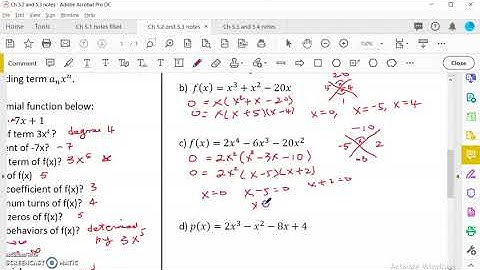 Ch 5.2 and 5.3 notes - Adobe Acrobat Pro DC
File Edit View Window Help
Home Tools Ch 5.1 notes filled Ch 5.2 and 5.3 note... Ch 5.3 and 5.4 notes
ding term aₙxⁿ.
mial function below:
-7x + 1
m of 3x⁴? degree 4
ent of -7x? -7
term of f(x)? 3x⁵
of f(x) 5
coefficient of f(x)? 3
num turns of f(x)? 4
zeros of f(x)? 5
behaviors of f(x)? determined
by 3x⁵
b) f(x) = x³ + x² − 20x
0 = x(x² + x − 20)
0 = x(x + 5)(x − 4) x=0, x=-5, x=4
-20
5 -4
1
c) f(x) = 2x⁴ − 6x³ − 20x²
0 = 2x²(x² − 3x − 10)
0 = 2x²(x − 5)(x + 2)
x=0 x−5=0 x+2=0
-10
-5 2
-3
d) p(x) = 2x³ − x² − 8x + 4
Activate Windows